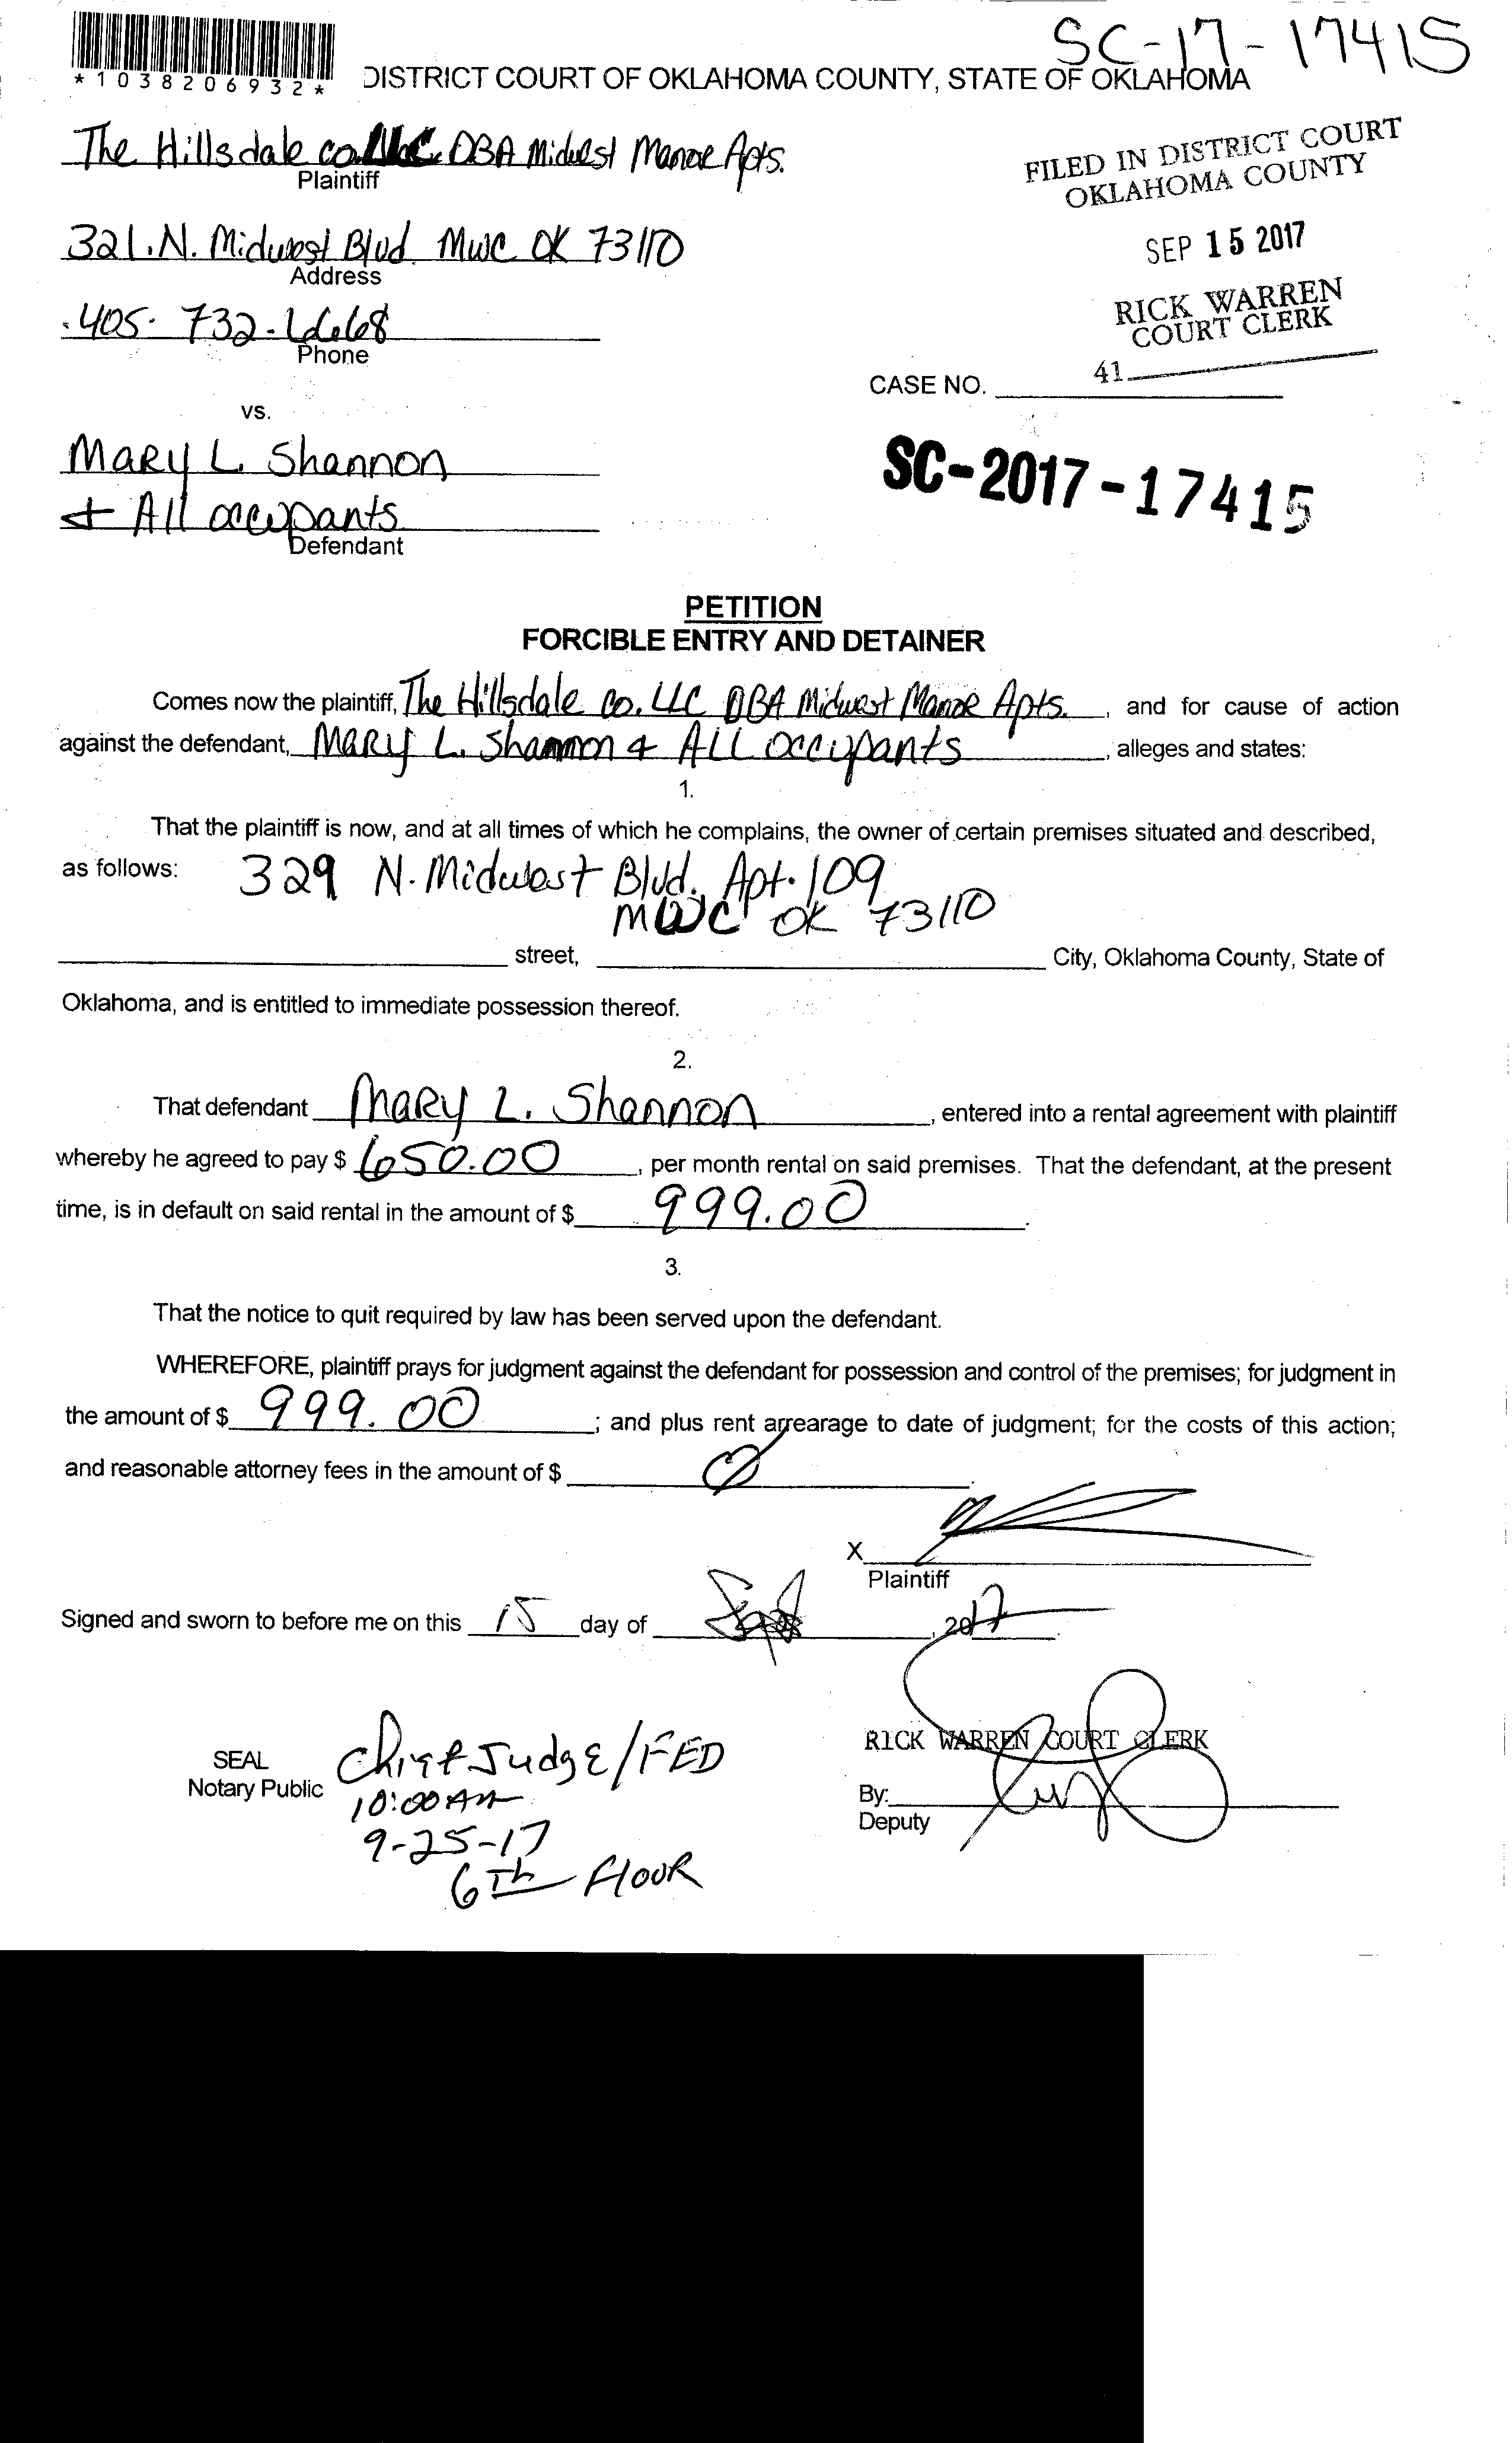 SC-17-17415
*1038206932*
DISTRICT COURT OF OKLAHOMA COUNTY, STATE OF OKLAHOMA
The Hillsdale co. LLC DBA Midwest Manor Apts.
Plaintiff
FILED IN DISTRICT COURT
OKLAHOMA COUNTY
321.N. Midwest Blvd. MWC OK 73110
Address
SEP 15 2017
405. 732.1668
Phone
RICK WARREN
COURT CLERK
41
CASE NO.
vs.
Mary L. Shannon
+ All occupants
Defendant
SC-2017-17415
PETITION
FORCIBLE ENTRY AND DETAINER
Comes now the plaintiff, The Hillsdale co. LLC DBA Midwest Manor Apts. , and for cause of action
against the defendant, Mary L. Shannon + All occupants , alleges and states:
1.
That the plaintiff is now, and at all times of which he complains, the owner of certain premises situated and described,
as follows: 329 N. Midwest Blvd. Apt. 109
MWC OK 73110
street, City, Oklahoma County, State of
Oklahoma, and is entitled to immediate possession thereof.
2.
That defendant Mary L. Shannon , entered into a rental agreement with plaintiff
whereby he agreed to pay $ 650.00 , per month rental on said premises. That the defendant, at the present
time, is in default on said rental in the amount of $ 999.00 .
3.
That the notice to quit required by law has been served upon the defendant.
WHEREFORE, plaintiff prays for judgment against the defendant for possession and control of the premises; for judgment in
the amount of $ 999.00 ; and plus rent arrearage to date of judgment; for the costs of this action;
and reasonable attorney fees in the amount of $ Ø .
X
Plaintiff
Signed and sworn to before me on this 15 day of Sept , 2017.
SEAL
Notary Public
Chief Judge/FED
10:00 AM
9-25-17
6Th Floor
RICK WARREN COURT CLERK
By:
Deputy